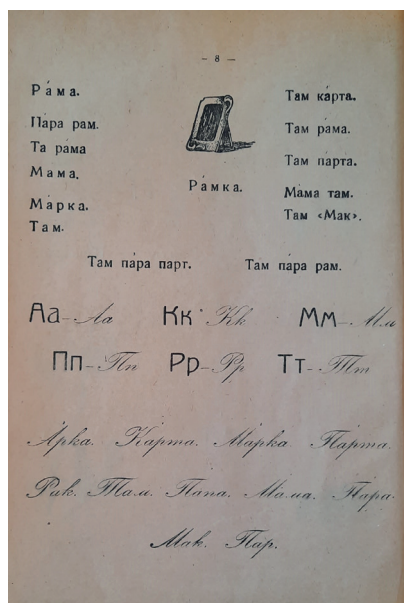 – 8 –
Ра́ма.
Па́ра рам.
Та ра́ма
Ма́ма.
Ма́рка.
Там.
Ра́мка.
Там ка́рта.
Там ра́ма.
Там па́рта.
Ма́ма там.
Там «Мак».
Там па́ра парт. Там па́ра рам.
Аа – Аа Кк – Кк Мм – Мм
Пп – Пп Рр – Рр Тт – Тт
А́рка. Ка́рта. Ма́рка. Па́рта.
Рак. Там. Па́па. Ма́ма. Па́ра.
Мак. Пар.